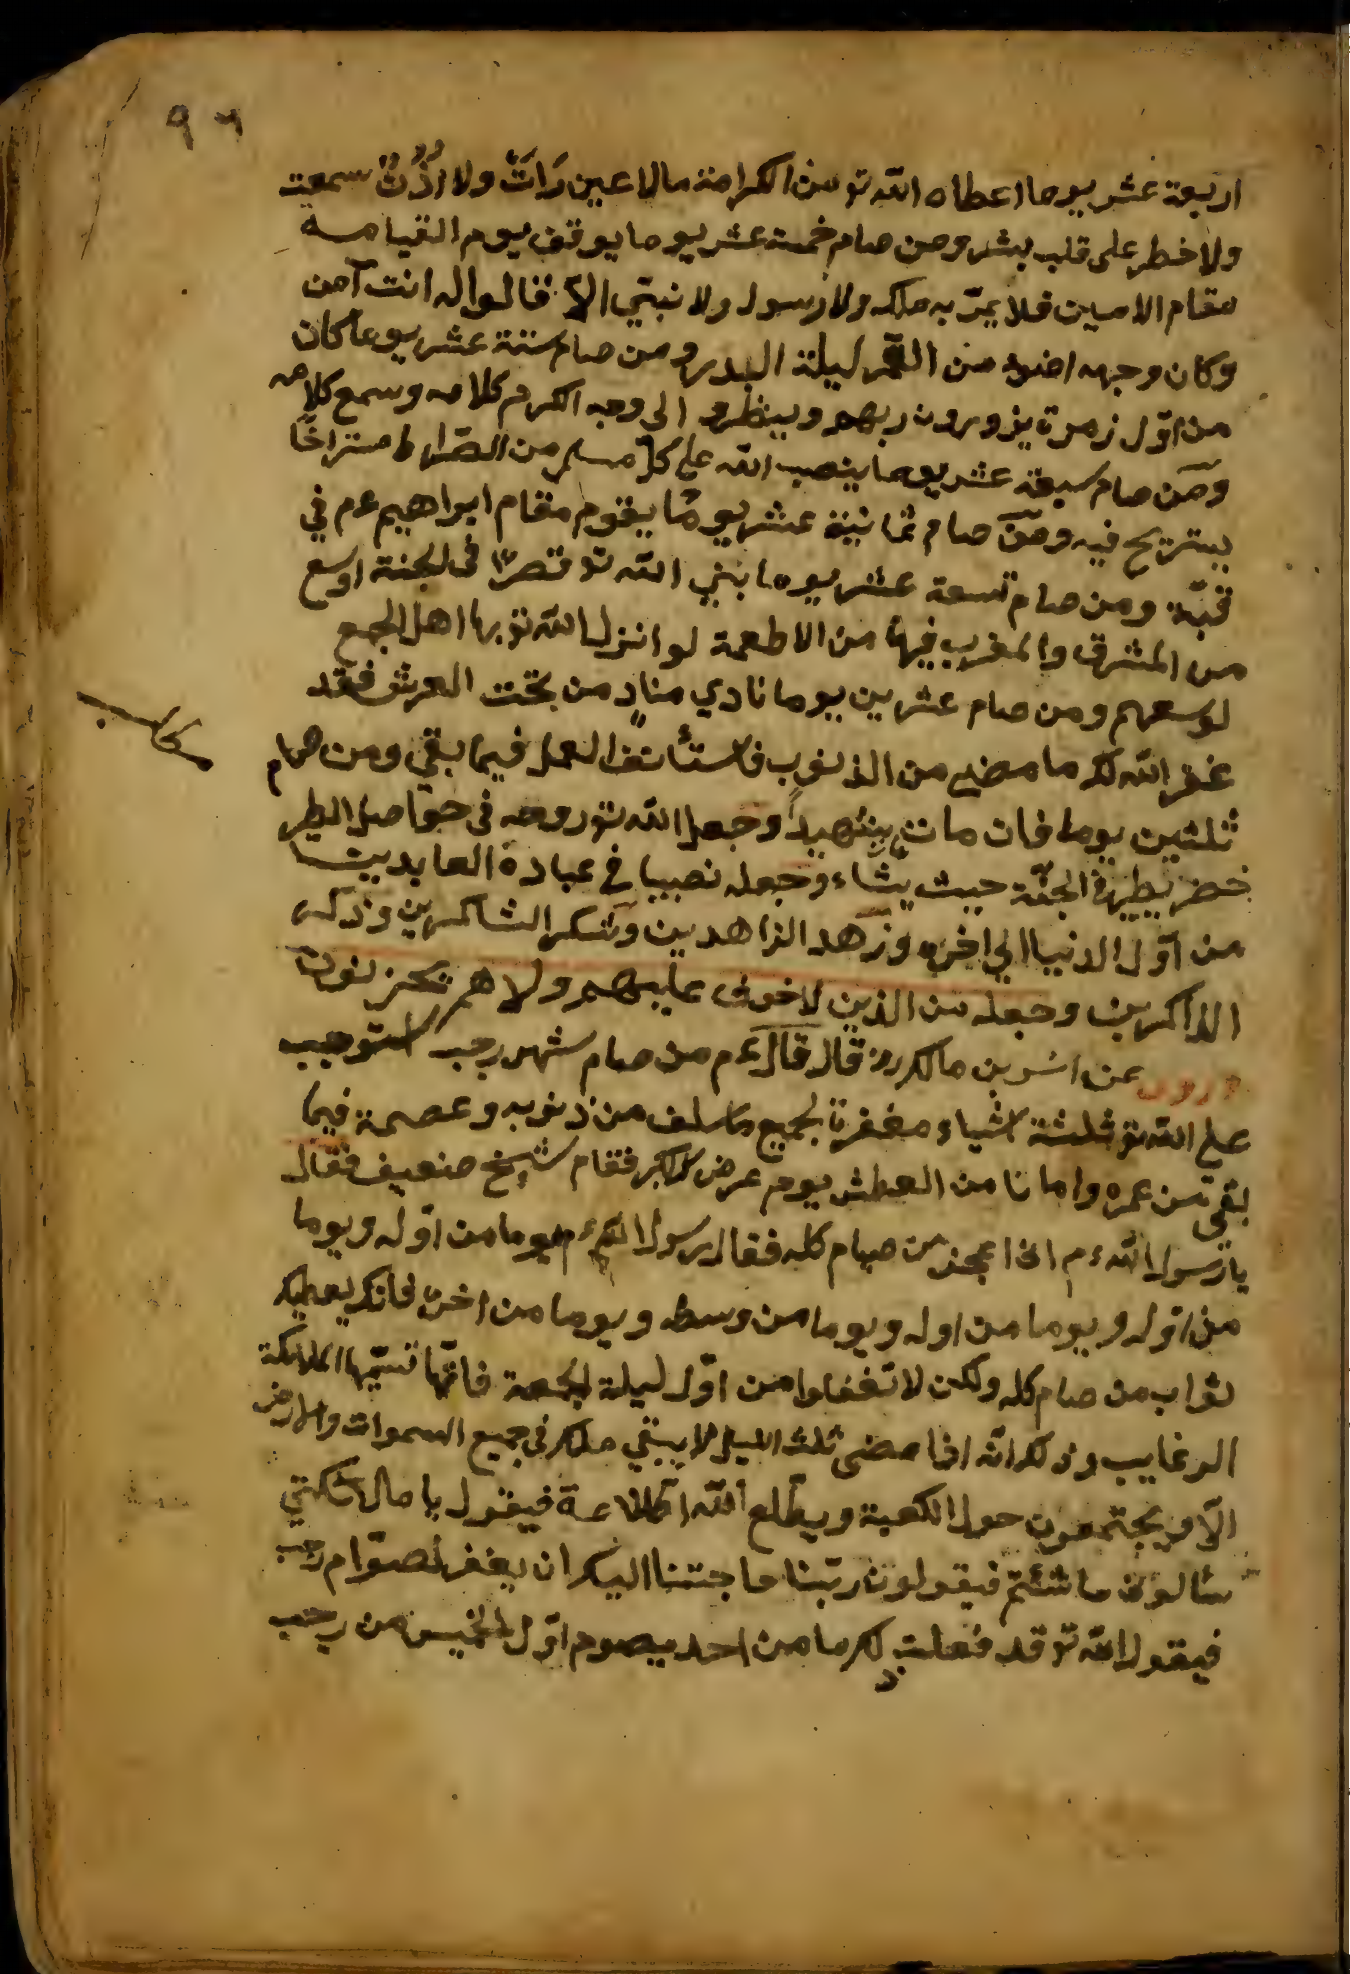 ٩٦
اربعة عشر يوما اعطاه الله تو من الكرامة مالا عين رَاَتْ ولا اُذُنٌ سمعت
ولا خطر على قلب بشر ومن صام خمسة عشر يوما يوقف يوم القيامة
مقام الامين فلا يمرّ به ملك ولا رسول ولا نبيّ الاّ قالوا له انت آمن
وكان وجهه اضوء من القمر ليلة البدر ومن صام ستة عشر يوما كان
من اوّل زمرة يزورون ربهم وينظرو الى وجه الكرم كلامه وسمع كلامه
ومَن صام سبعة عشر يوما ينصب الله على كل مسلم من الصّراط مستراحًا
يستريح فيه ومَن صام ثمانية عشر يومًا يقوم مقام ابراهيم عم في
قبّة ومن صام تسعة عشر يوما بني الله تو قصرًا في الجنة اوسع
من المشرق والمغرب فيها من الاطعمة لو انزل الله تو بها اهل الجمع
لوسعهم ومن صام عشرين يوما نادي منادٍ من تحت العرش فقد
غفر الله لك ما مضي من الذنوب فاستأنف العمل فيما بقي ومن صام
ثلثين يوما فان مات شهيداً وجعل الله تو روحه في حواصل الطير
خضر يطير في الجنّة حيث يشاء وجعله نصيبا في عبادة العابدين
من اوّل الدنيا الي اخره وزهد الزاهدين وشكر الشاكرين وذكر
الذاكرين وجعله من الذين لا خوف عليهم ولا هم يحزنون
وروى عن انس بن مالك رض قال قال عم من صام شهر رجب استوجب
على الله تو ثلثة اشياء مغفرة لجميع ما سلف من ذنوبه وعصمة فيما
بقي من عمره وامانا من العطش يوم عرض الاكبر فقام شيخ ضعيف فقال
يا رسول الله عم اني اعجز من صيام كله فقال رسول الله عم يوما من اوله ويوما
من اوله ويوما من اوله ويوما من وسطه ويوما من اخره فانك يعطيك
ثواب من صام كله ولكن لا تغفلوا من اوّل ليلة الجمعة فانّها تسمّيها الملائكة
الرغايب وذلك انّه اذا مضى ثلث الليل لا يبقي ملك في جميع السموات والارض
الاّ ويجتمعون حول الكعبة ويطّلع الله اطّلاعة فيقول يا ملائكتي
سألوني ما شئتم فيقولون ربّنا حاجتنا اليك ان يغفر لصوّام رجب
فيقول الله تو قد فعلت لكم ما من احد يصوم اوّل الخميس من رجب